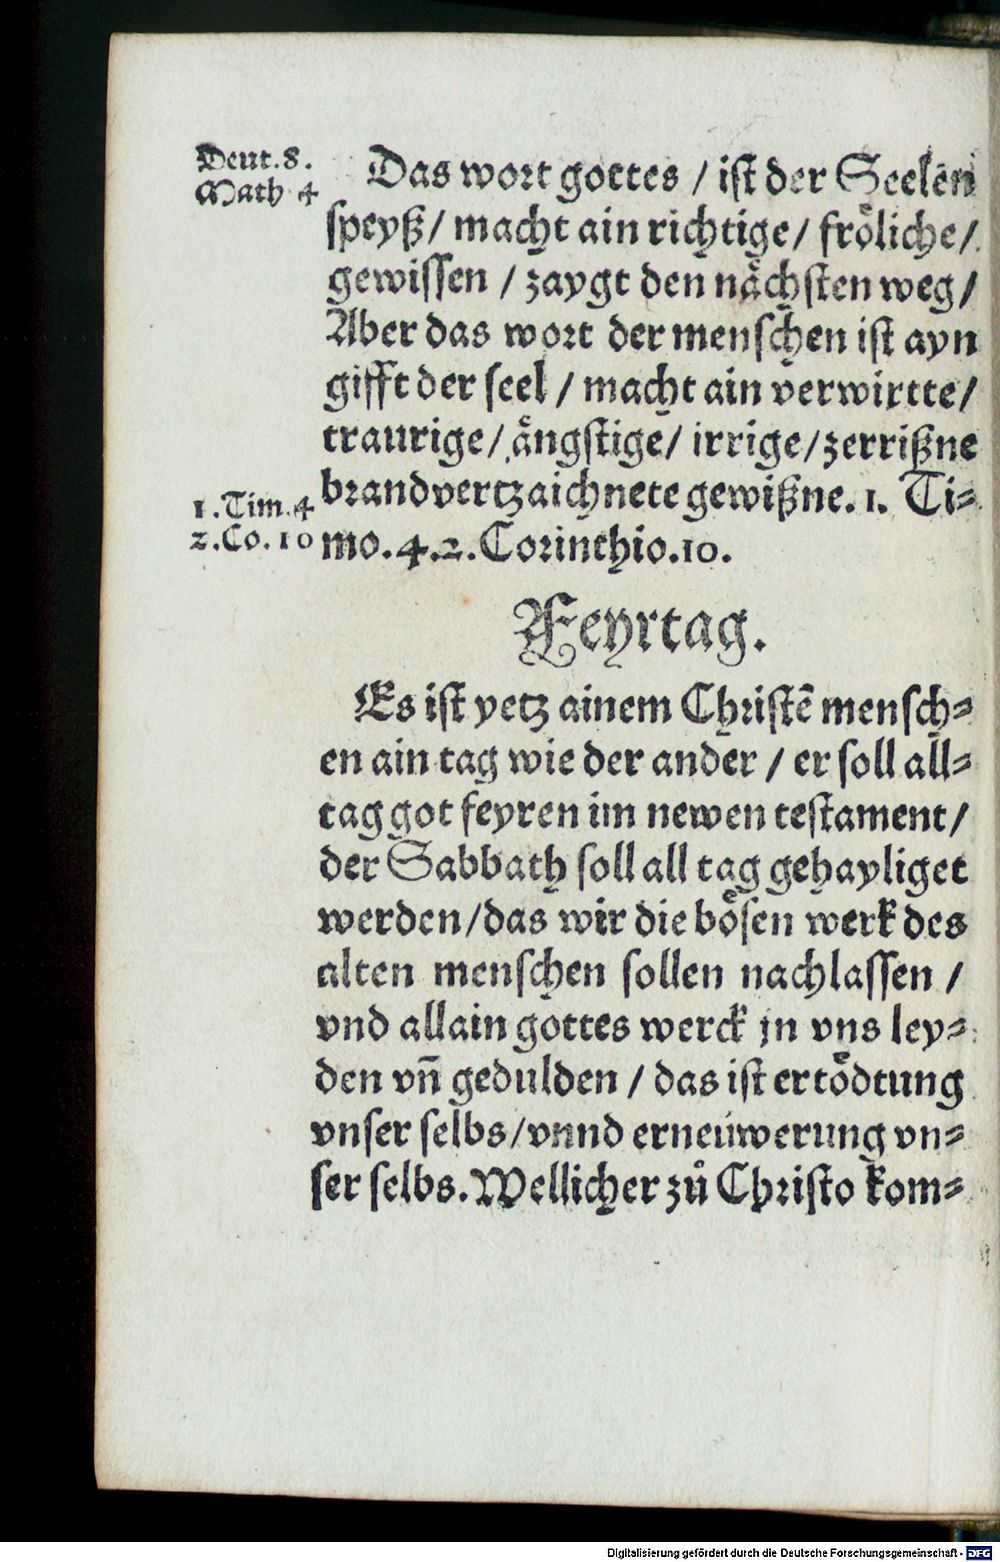 Deut.8.
Math 4
Das wort gottes / ist der Seelen
speyß / macht ain richtige / frôliche /
gewissen / zaygt den nåchsten weg /
Aber das wort der menschen ist ayn
gifft der seel / macht ain verwirtte /
traurige / ångstige / irrige / zerrißne
1.Tim.4
brandvertzaichnete gewißne. 1. Ti⸗
2.Co.10
mo.4.2.Corinthio.10.
Feyrtag.
Es ist yetz ainem Christē mensch⸗
en ain tag wie der ander / er soll all⸗
tag got feyren im newen testament /
der Sabbath soll all tag gehayliget
werden / das wir die bôͤsen werk des
alten menschen sollen nachlassen /
vnd allain gottes werck jn vns ley⸗
den vn̄ gedulden / das ist ertôͤdtung
vnser selbs / vnnd erneüwerung vn⸗
ser selbs. Wellicher zů Christo kom⸗
Digitalisierung gefördert durch die Deutsche Forschungsgemeinschaft - DFG